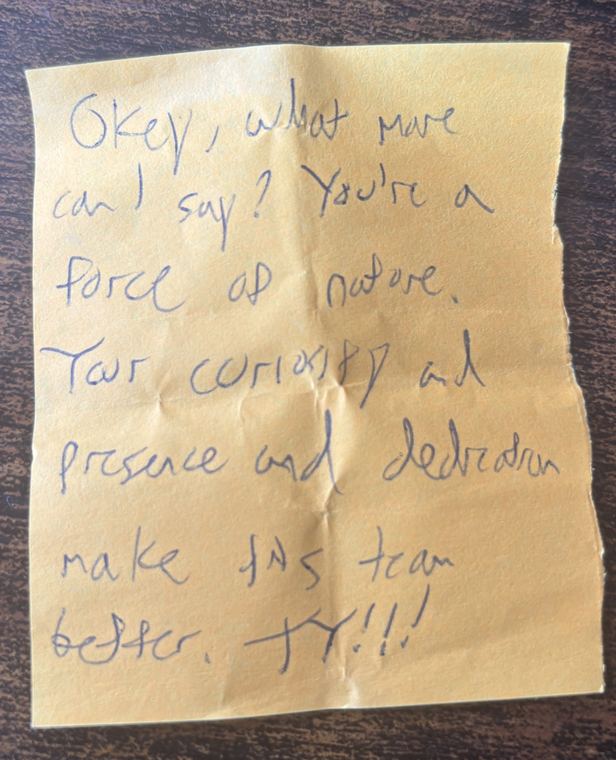 Okey, what more
can I say? You're a
force of nature.
Your curiosity and
presence and dedication
make this team
better. TY!!!